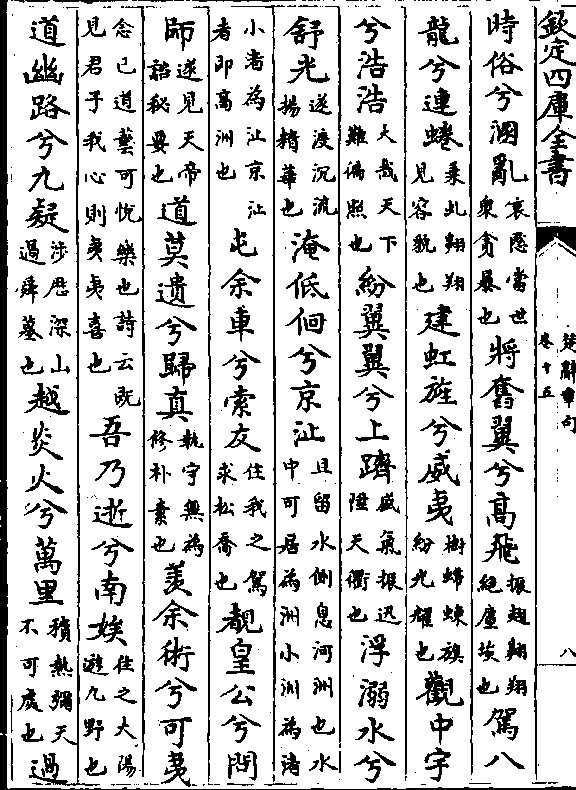 欽定四庫全書
楚辭章句
卷十五
八
時俗兮溷亂哀愍當世衆貪暴也將奮翼兮高飛振翅翱翔絕塵埃也駕八
龍兮連蜷乘此翱翔見容貌也建虹旌兮威夷樹螮蝀旗紛光耀也觀中宇
兮浩浩大哉天下難徧照也紛翼翼兮上躋盛氣振迅陞天衢也浮溺水兮
舒光遂渡沉流揚精華也淹低佪兮京沚且留水側息河洲也水中可居為洲小洲為渚
小渚為沚京沚者即高洲也屯余車兮索友住我之駕求松喬也覩皇公兮問
師遂見天帝諮秘要也道莫遺兮歸真執守無為修朴素也羨余術兮可夷
念已道藝可悅樂也詩云既見君子我心則夷夷喜也吾乃逝兮南娭往之大陽遊九野也
道幽路兮九疑涉歷深山過舜墓也越炎火兮萬里積熱彌天不可處也過